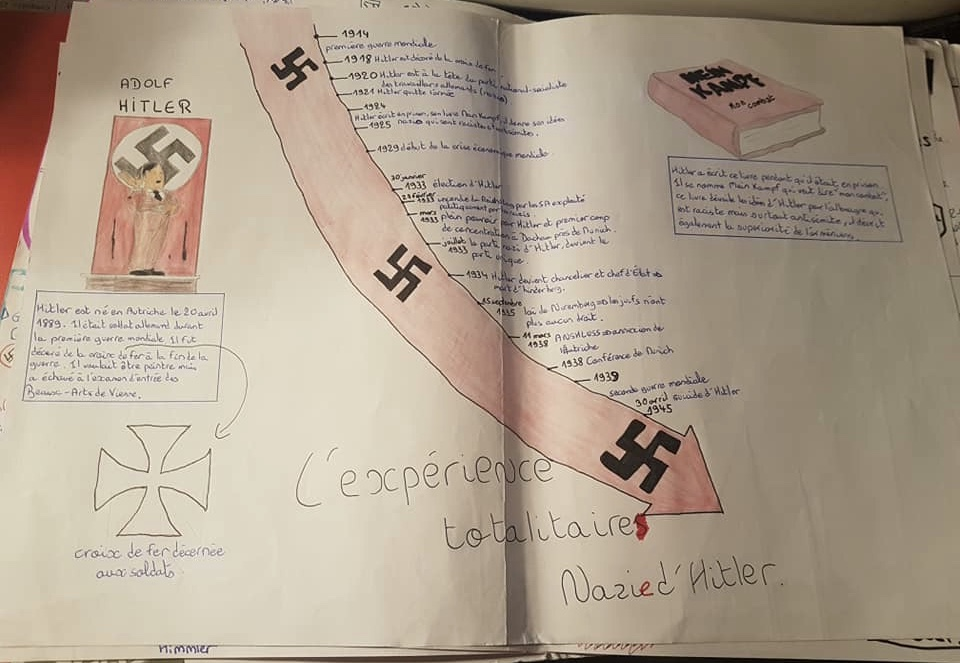 ADOLF
HITLER
Hitler est né en Autriche le 20 avril
1889. Il était soldat allemand durant
la première guerre mondiale il fut
décoré de la croix de fer à la fin de la
guerre. Il voulait être peintre mais
a échoué à l'examen d'entrée des
Beaux-Arts de Vienne.
croix de fer décernée
aux soldats.
1914
première guerre mondiale
1918 Hitler est décoré de la croix de fer
1920 Hitler est à la tête du parti national-socialiste
des travailleurs allemands (nazis)
1921 Hitler quitte l'armée
1924
Hitler écrit en prison, son livre Mein Kampf, il donne ses idées
1925 nazies qui sont racistes et antisémites.
1929 début de la crise économique mondiale
30 janvier
1933 élection d'Hitler
1933 incendie du par les SA exploité
politiquement par
mars
1933 plein pouvoir par Hitler et premier camp
de concentration à Dachau près de Munich.
juillet
1933 le parti nazi d'Hitler, devient le
parti unique.
1934 Hitler devient chancelier et chef d'État
mort d'
15 septembre
1935 loi de Nuremberg les juifs n'ont
plus aucun droit.
11 mars
1938 annexion de
l'Autriche
1938 Conférence de Munich
1939
seconde guerre mondiale
30 avril suicide d'Hitler
1945
MEIN
KAMPF
mon combat
Hitler a écrit ce livre pendant qu'il était en prison.
Il se nomme Mein Kampf qui veut dire "mon combat",
ce livre dévoile les idées d'Hitler pour l'allemagne qui
est raciste mais surtout antisémite, il décrit
également la supériorité de
L'expérience
totalitaires
Nazie d'Hitler.
Himmler